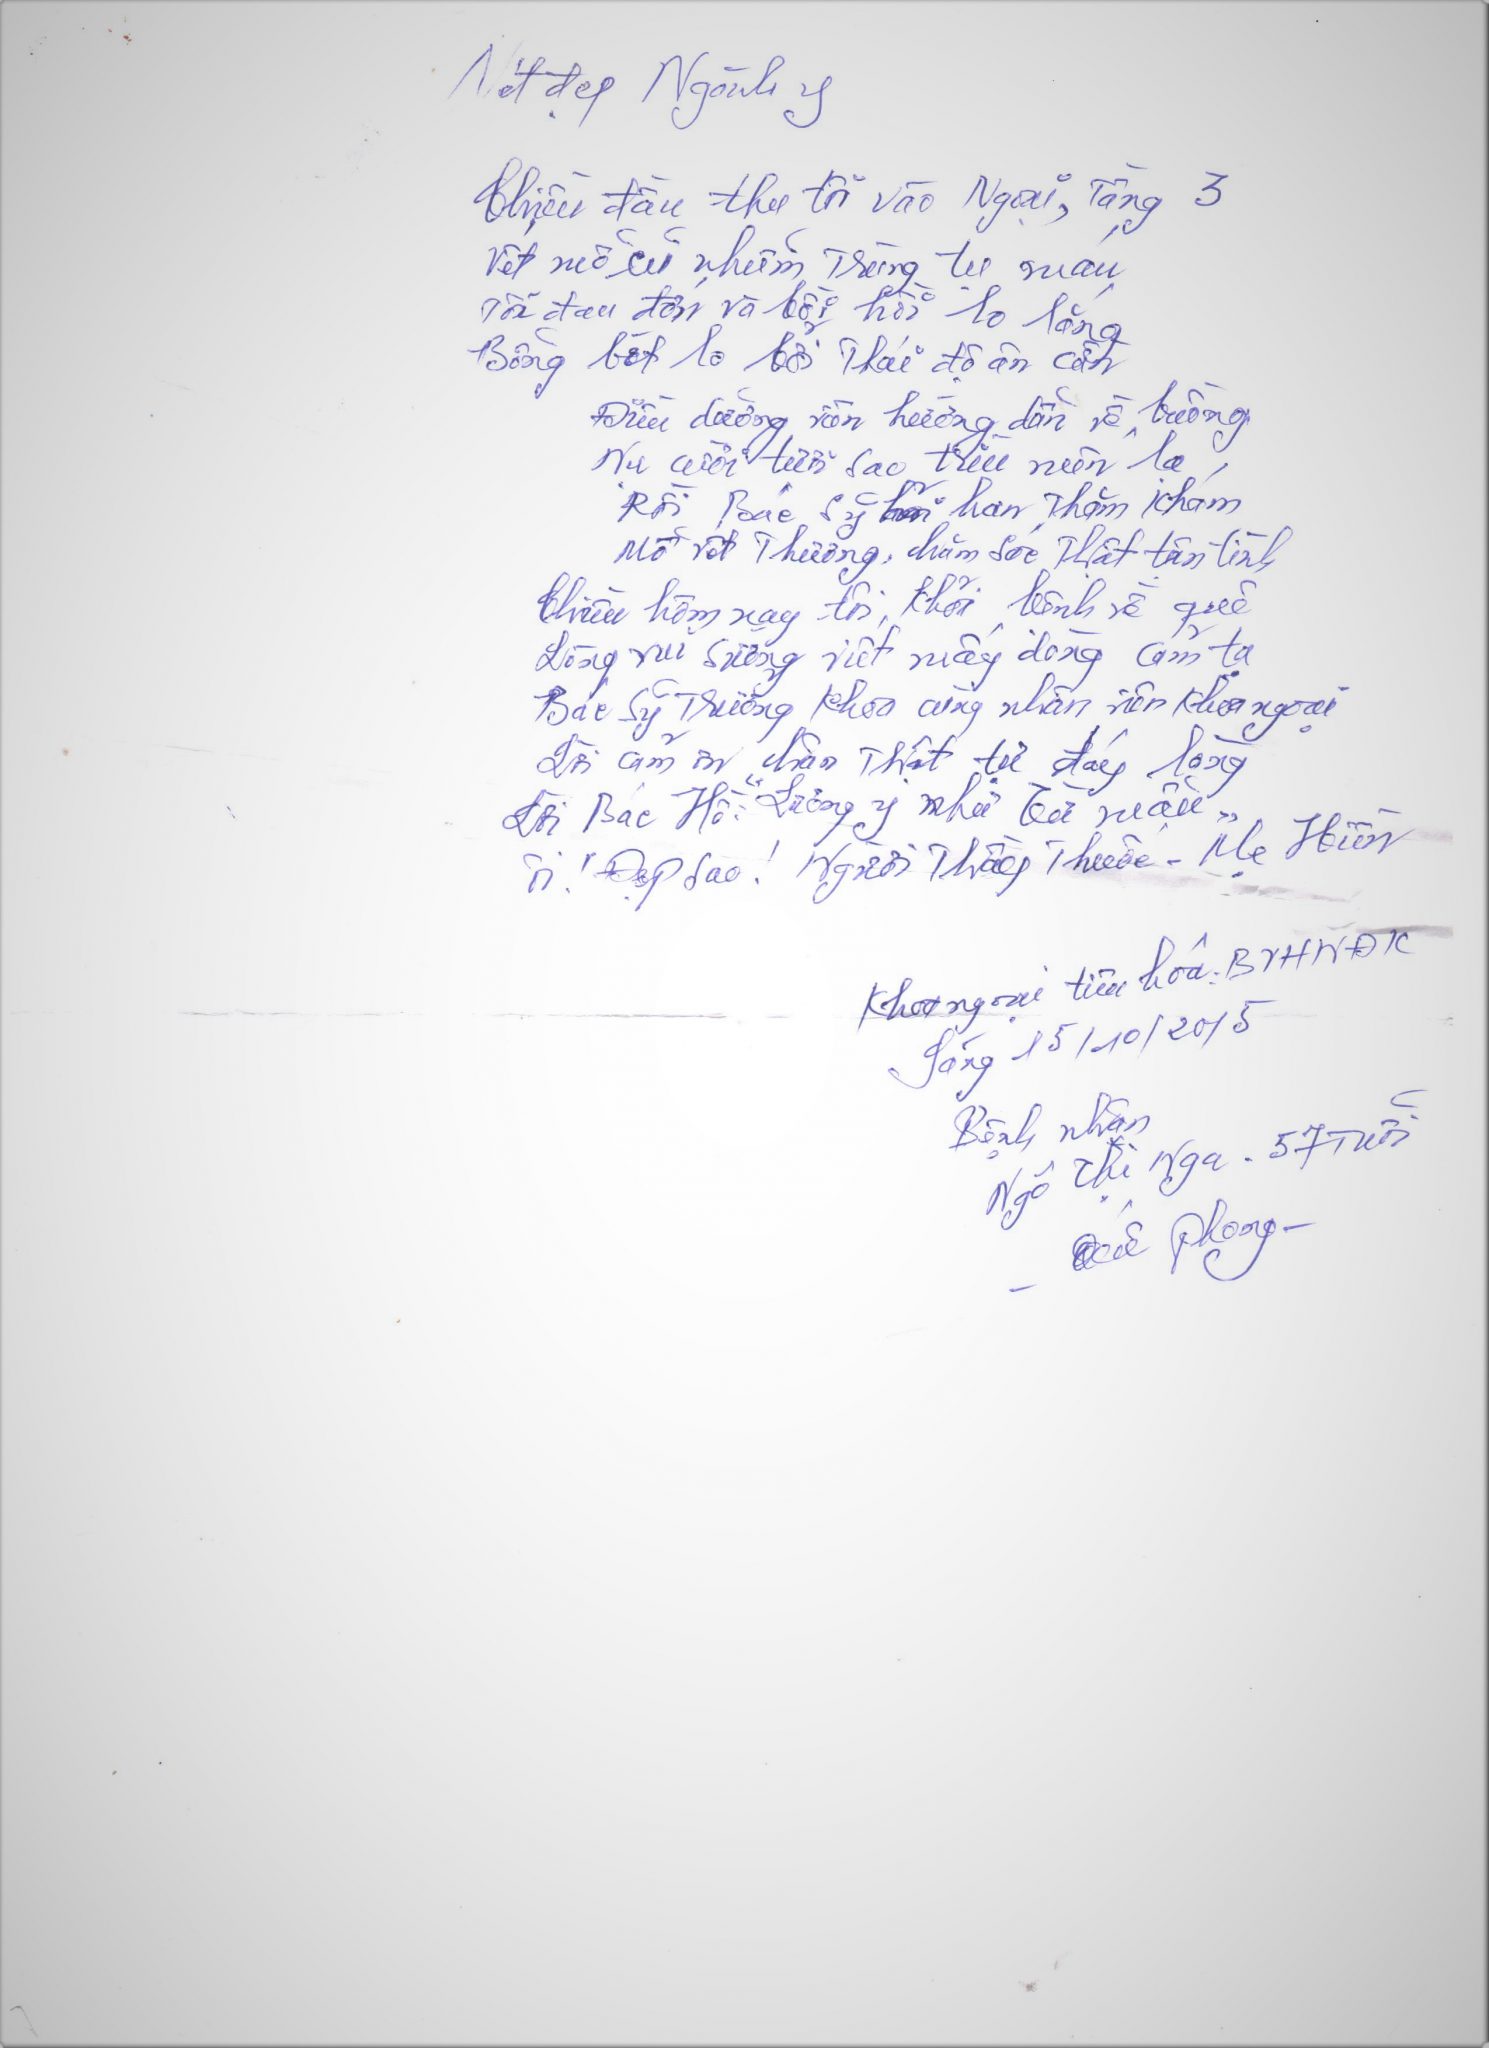 Nét đẹp Ngành y
Chiều đầu thu tôi vào Ngoại, Tầng 3
Vết mổ cũ nhiễm Trùng tụ máu
Tôi đau đớn và bồi hồi lo lắng
Bỗng bớt lo bởi Thái độ ân cần
Điều dưỡng viên hướng dẫn về buồng
Nụ cười tươi sao trìu mến lạ
Rồi Bác Sỹ hỏi han Thăm khám
Mổ vết Thương, chăm sóc Thật tận tình
Chiều hôm nay tôi khỏi bệnh về quê
Lòng vui sướng viết mấy dòng cảm tạ
Bác sỹ Trưởng Khoa cùng nhân viên Khoa ngoại
Lời cảm ơn chân Thật từ đáy lòng
Lời Bác Hồ: "Lương y như Từ mẫu"
Ôi! Đẹp sao! Người Thầy Thuốc - Mẹ Hiền
Khoa ngoại tiêu hóa: BVHNĐK
Sáng 15/10/2015
Bệnh nhân
Ngô Thị Nga - 57 Tuổi
- Quế Phong -